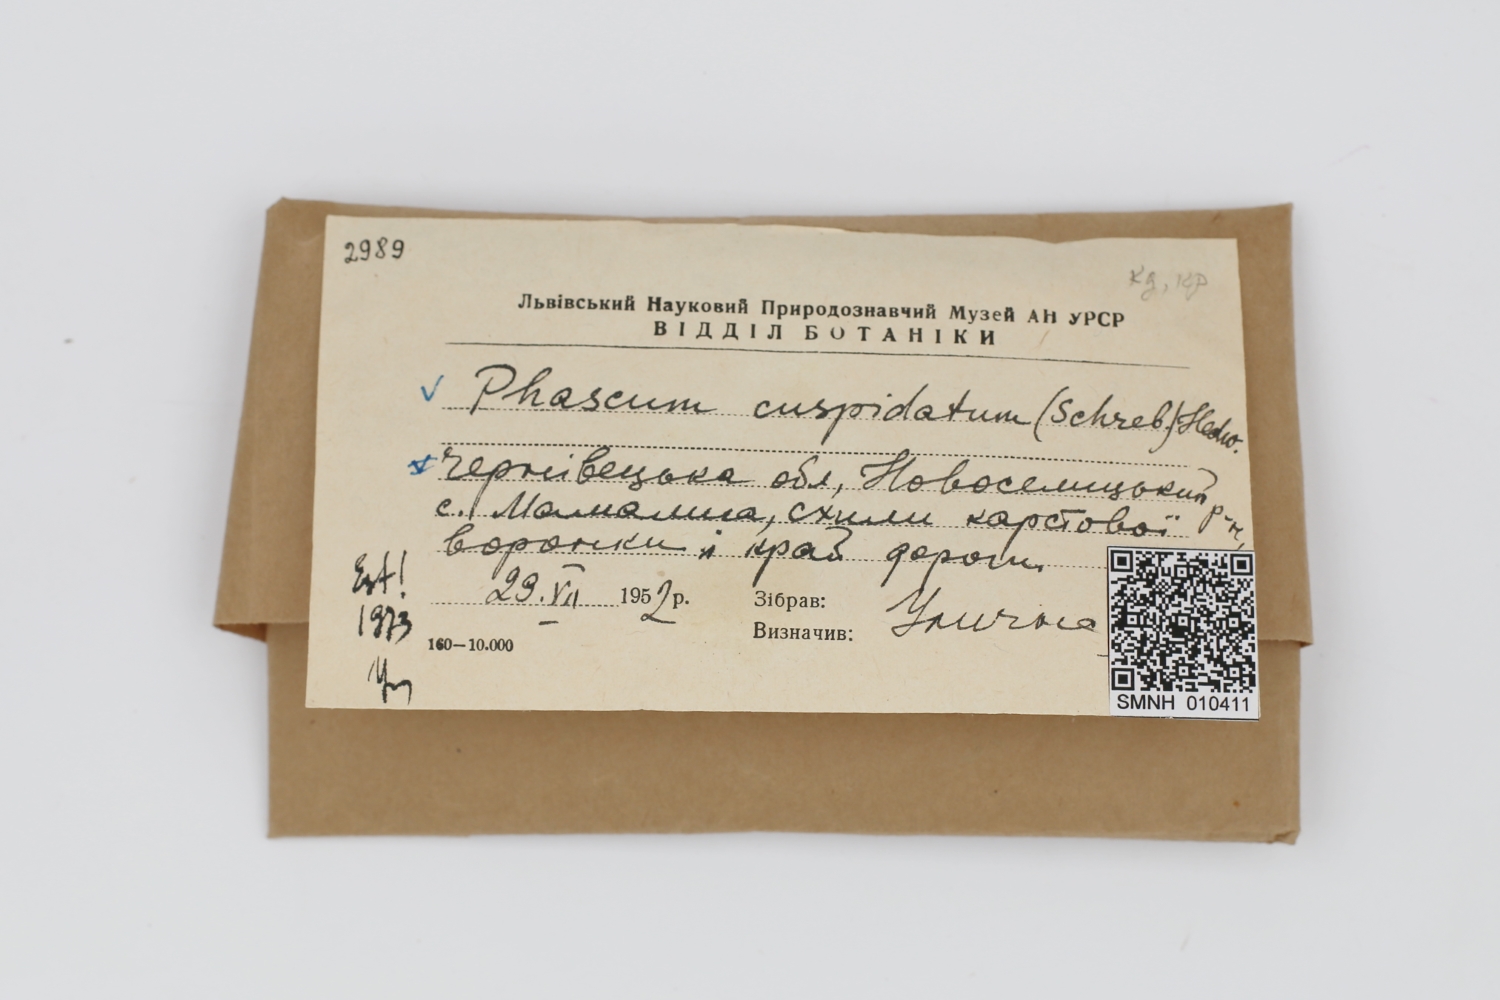 2989
кд, кр
Львівський Науковий Природознавчий Музей АН УРСР
ВІДДІЛ БОТАНІКИ
Phascum cuspidatum (Schreb.) Hedw.
Чернівецька обл, Новоселицький р-н,
с. Мамалига, схили карстової
воронки і край дороги.
Est!
1973
29.VII 1952 р.
Зібрав: Улична
Визначив:
160—10.000
SMNH 010411